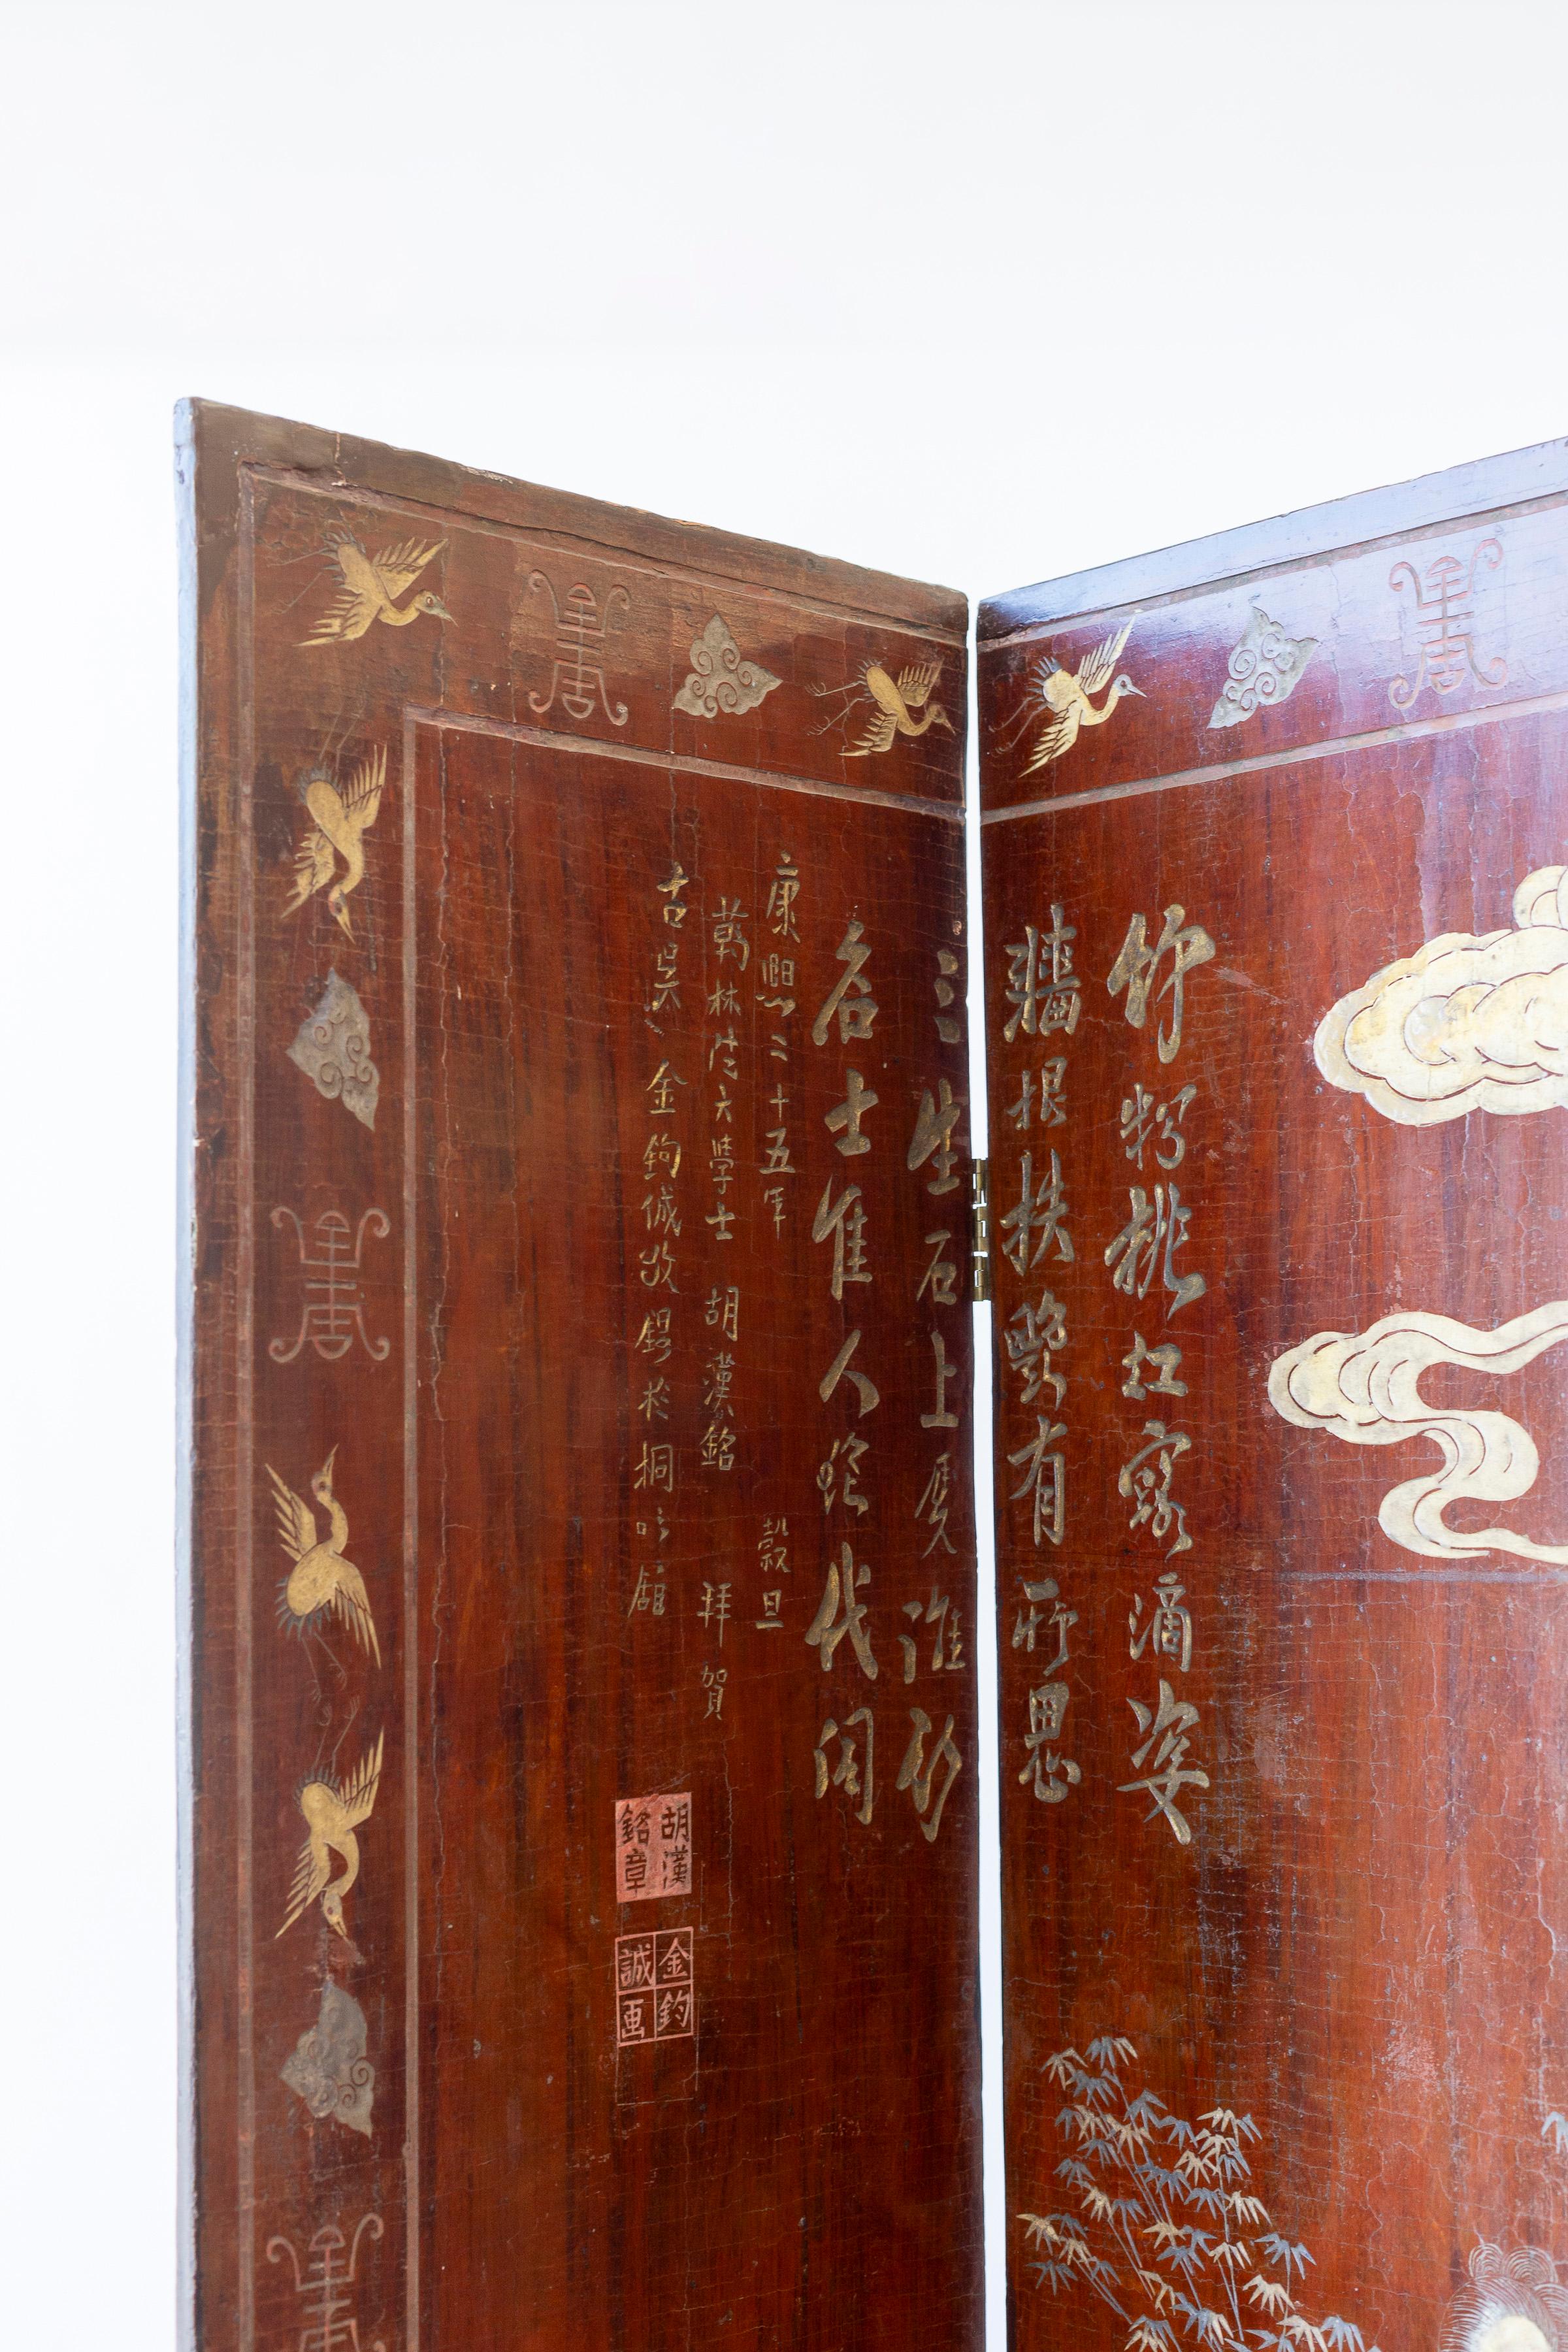 竹粉搽紅露滴姿
牆根扶艷有所思
三生石上夙誰形
名士隹人絕代同
康熙二十五年 穀旦
翰林大學士 胡漢銘 拜賀
古吳 金鈎誠 錫於桐吟館
胡漢
銘章
金鈞
誠画